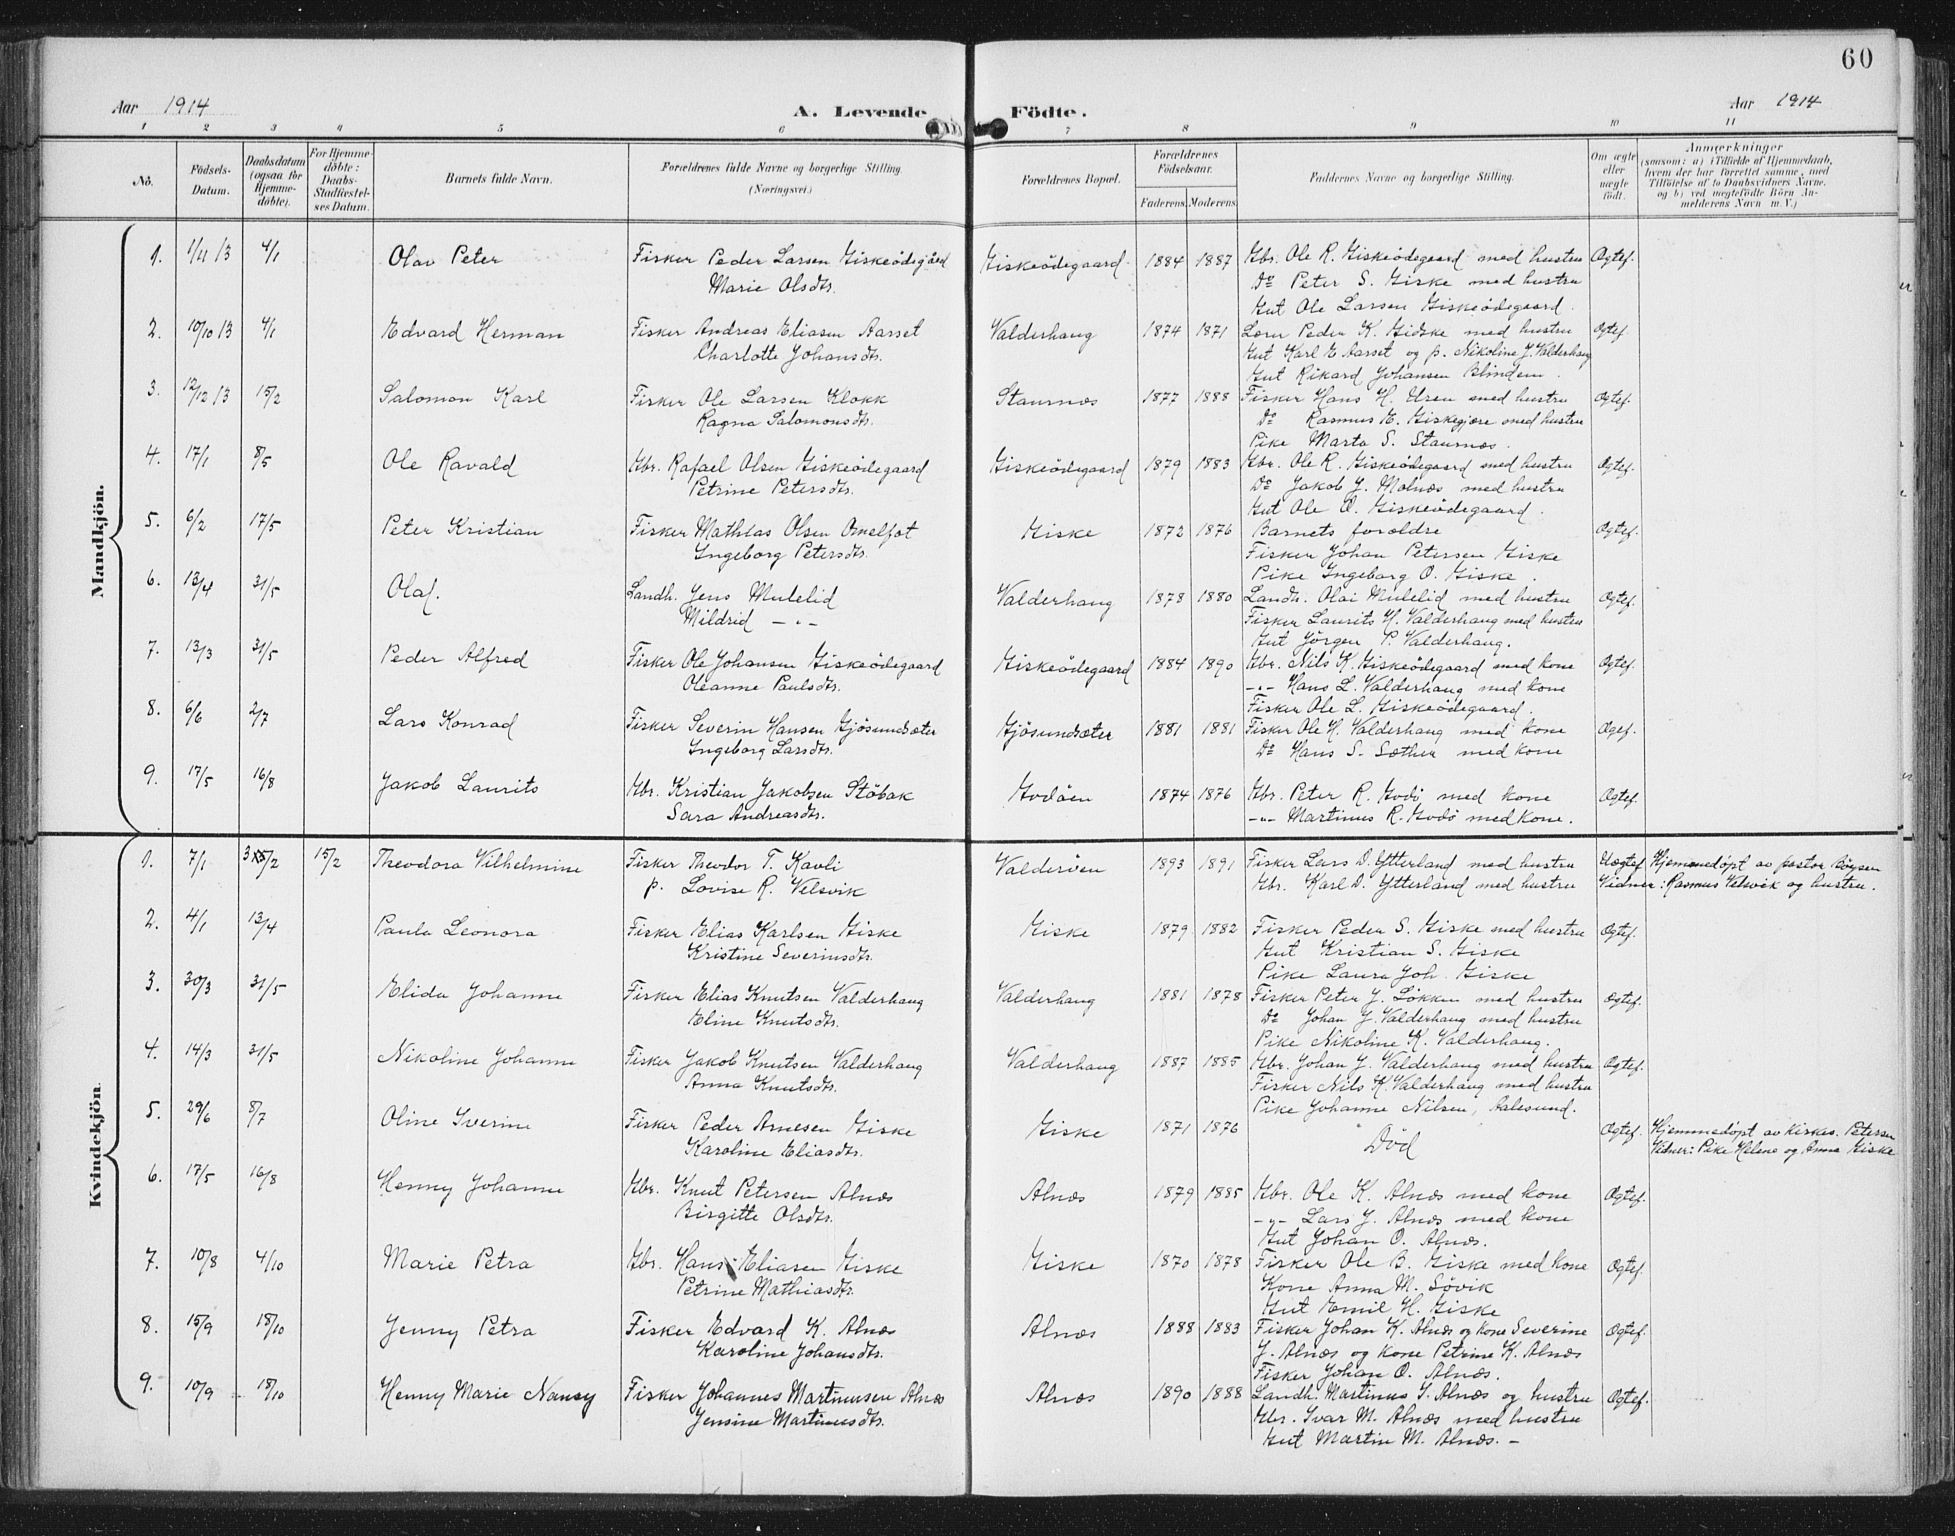 60
Aar 1914
A. Levende Födte.
Aar 1914
1 2 3 4 5 6 7 8 9 10 11
No.
Födsels-Datum.
Daabsdatum (ogsaa for Hjemme-döbte).
For Hjemme-döbte: Daabs-Stadfæstel-ses Datum.
Barnets fulde Navn.
Forældrenes fulde Navne og borgerlige Stilling.
(Næringsvei.)
Forældrenes Bopæl.
Forældrenes Födselsaar.
Faderens. Moderens.
Faddernes Navne og borgerlige Stilling.
Om ægte eller uægte födt.
Anmærkninger
(saasom: a) i Tilfælde af Hjemmedaab,
hvem der har forrettet samme, med
Tilföielse af to Daabsvidners Navne,
og b) ved uægtefödte Börn An-
melderens Navn m. V.)
Mandkjön.
1. 1/11 13 4/1 Olav Peter Fisker Peder Larsen Giskeödegård Giskeödegaard 1884 1887 Gbr. Ole R. Giskeödegaard med hustru Ægtef.
Marie Olsdtr. Do Peter S. Giske med hustru
Gut Ole Larsen Giskeödegaard.
2. 10/10 13 4/1 Edvard Herman Fisker Andreas Eliasen Aarset Valderhaug 1874 1871 Peder K. Gidske med hustru Ægtef.
Charlotte Johansdtr. Gut Karl E Aarset og p. Nikoline J. Valderhaug
Gut Rikard Johansen Blindem.
3. 12/12 13 15/2 Salomon Karl Fisker Ole Larsen Klokk Staurnæs 1877 1888 Fisker Hans H. Ursn med hustru Ægtef.
Ragna Salomonsdtr. Do Rasmus E. Giskegjøre med hustru
Pike Marta S. Staurnæs.
4. 17/1 8/5 Ole Ravald Gbr. Rafael Olsen Giskeödegaard Giskeödegaard 1879 1883 Gbr. Ole R. Giskeödegaard med hustru Ægtef.
Petrine Petersdtr. Do Jakob J. Molnæs med hustru
Gut Ole O. Giskeödegaard.
5. 6/2 17/5 Peter Kristian Fisker Mathias Olsen Giske 1872 1876 Barnets forældre Ægtef.
Ingeborg Petersdtr. Fisker Johan Petersen Giske
Pike Ingeborg O. Giske.
6. 13/4 31/5 Olaf. Landh. Jens Mulelid Valderhaug 1878 1880 Landh. Olai Mulelid med hustru Ægtef.
Mildrid - " - Fisker Laurits H. Valderhaug med hustru
Gut Jörgen P. Valderhaug.
7. 13/3 31/5 Peder Alfred Fisker Ole Johansen Giskeödegaard Giskeödegaard 1884 1890 Gbr. Nils K. Giskeödegaard med kone Ægtef.
Oleanne Paulsdtr. - " - Hans L. Valderhaug med kone
Fisker Ole L. Giskeödegaard.
8. 6/6 2/7 Lars Konrad Fisker Severin Hansen Gjösundsæter Gjösundsæter 1881 1881 Fisker Ole H. Valderhaug med kone Ægef.
Ingeborg Larsdtr. Do Hans S. Sæther med kone
9. 17/5 16/8 Jakob Laurits Gbr. Kristian Jakobsen Stöbak Godöen 1874 1876 Gbr. Peter R. Godö med kone Ægtef.
Sara Andreasdtr. - " - Martinus R. Godö med kone.
Kvindekjön.
1. 7/1 15/2 15/2 Theodora Vilhelmine Fisker Theodor T. Kavli Valderöen 1893 1891 Fisker Lars D. Ytterland med hustru Uægtef. Hjemmedöpt av pastor
p. Lovise R. Velsvik Gbr. Karl D. Ytterland med hustru Vidner: Rasmus Velsvik og hustru.
2. 4/1 13/4 Paula Leonora Fisker Elias Karlsen Giske Giske 1879 1882 Fisker Peder S. Giske med hustru Ægtef.
Kristine Severinsdtr. Gut Kristian S. Giske
Pike Laura Joh. Giske
3. 30/3 31/5 Elida Johanne Fisker Elias Knutsen Valderhaug Valderhaug 1881 1878 Fisker Peter J. Løkken med hustru Ægtef.
Eline Knutsdtr. Do Johan J. Valderhaug med hustru
Pike Nikoline K. Valderhaug.
4. 14/3 31/5 Nikoline Johanne Fisker Jakob Knutsen Valderhaug Valderhaug 1887 1885 Gbr. Johan J. Valderhaug med hustru Ægtef.
Anna Knutsdtr. Fisker Nils K. Valderhaug med hustru
Pike Johanne Nilsen, Aalesund.
5. 29/6 8/7 Oline Sverine Fisker Peder Arnesen Giske Giske 1871 1876 Död Ægtef. Hjemmedöpt av kirkes. Petersen
Karoline Eliasdtr. Vidner: Pike Helene og Anna Giske
6. 17/5 16/8 Henny Johanne Gbr. Knut Petersen Alnæs Alnæs 1879 1885 Gbr. Ole K. Alnæs med kone Ægtef.
Birgitte Olsdtr. - " - Lars J. Alnæs med kone
Gut Johan O. Alnæs.
7. 10/8 4/10 Marie Petra Gbr. Hans Eliasen Giske Giske 1870 1878 Fisker Ole B. Giske med kone Ægtef.
Petrine Mathiasdtr. Kone Anna M. Sövik
Gut Emil H. Giske
8. 15/9 18/10 Jenny Petra Fisker Edvard K. Alnæs Alnæs 1888 1883 Fisker Johan K. Alnæs og kone Severine Ægtef.
Karoline Johansdtr. J. Alnæs og kone Petrine K. Alnæs
Fisker Johan O. Alnæs.
9. 10/9 18/10 Henny Marie Nansy Fisker Johannes Martinusen Alnæs Alnæs 1890 1888 Landh. Martinus J. Alnæs og hustru Ægtef.
Jensine Martinusdtr. Gbr. Ivar M. Alnæs med hustru
Gut Martin M. Alnæs. -